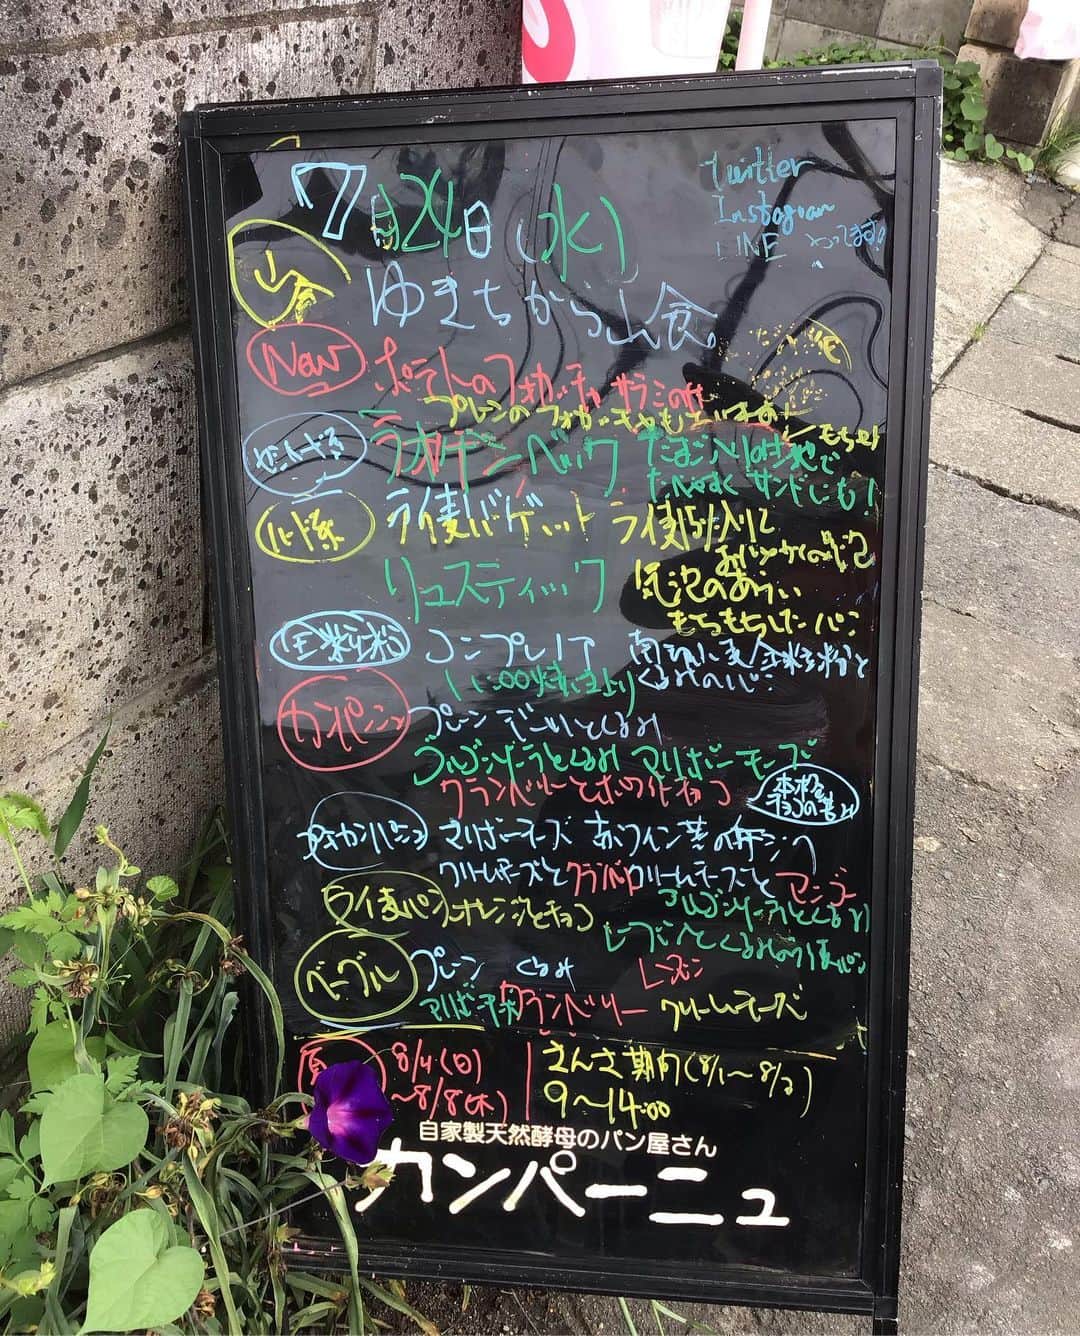 7月24日(水)
twitter
Instagram
LINE やってます
山食
ゆきちから山食
New
ポテトのフォカッチャ サラミのせ
プレーンのフォカッチャも
ラオゲンベック
サンドにも!
ハード系
ライ麦バゲット ライ麦15%入りで
リュスティック 気泡のあらい
もちもちしたパン
全粒粉
コンプレノア 南部小麦全粒粉と
くるみのパン
11:00焼き上り
カンパーニュ
プレーン くるみ
ゴルゴンゾーラとくるみ マリボーチーズ
クランベリーとホワイトチョコ
プチカンパーニュ マリボーチーズ 赤ワイン煮の無花果
クリームチーズとクランベリー クリームチーズとマンゴー
ライ麦パン オレンジとチョコ
ゴルゴンゾーラとくるみ
レーズンとくるみのライ麦パン
ベーグル
プレーン くるみ レーズン
マリボーチーズ クランベリー クリームチーズ
夏 8/4(日)
~8/8(木)
さんさ期間(8/1~8/3)
9~14:00
自家製天然酵母のパン屋さん
カンパーニュ